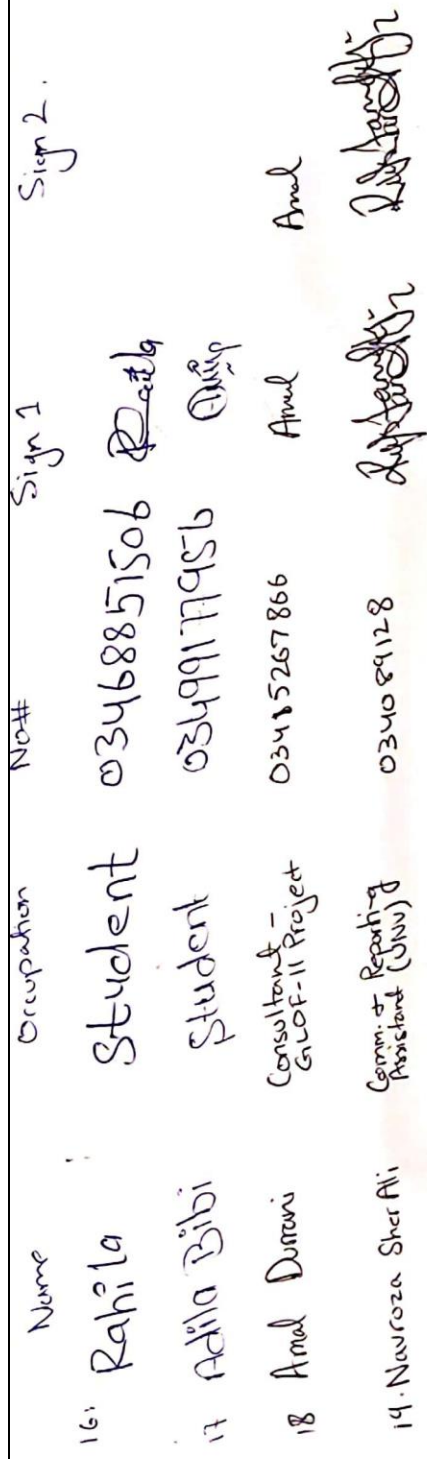 Name Occupation No# Sign 1 Sign 2.
16. Rahila Student 03468851506 Rahila
17 Adila Bibi Student 03499177956
18 Amal Durrani Consultant - GLOF-II Project 03485267866 Amal Amal
19. Navroza Sher Ali Comm. & Reporting Assistant (UNV) 034089128